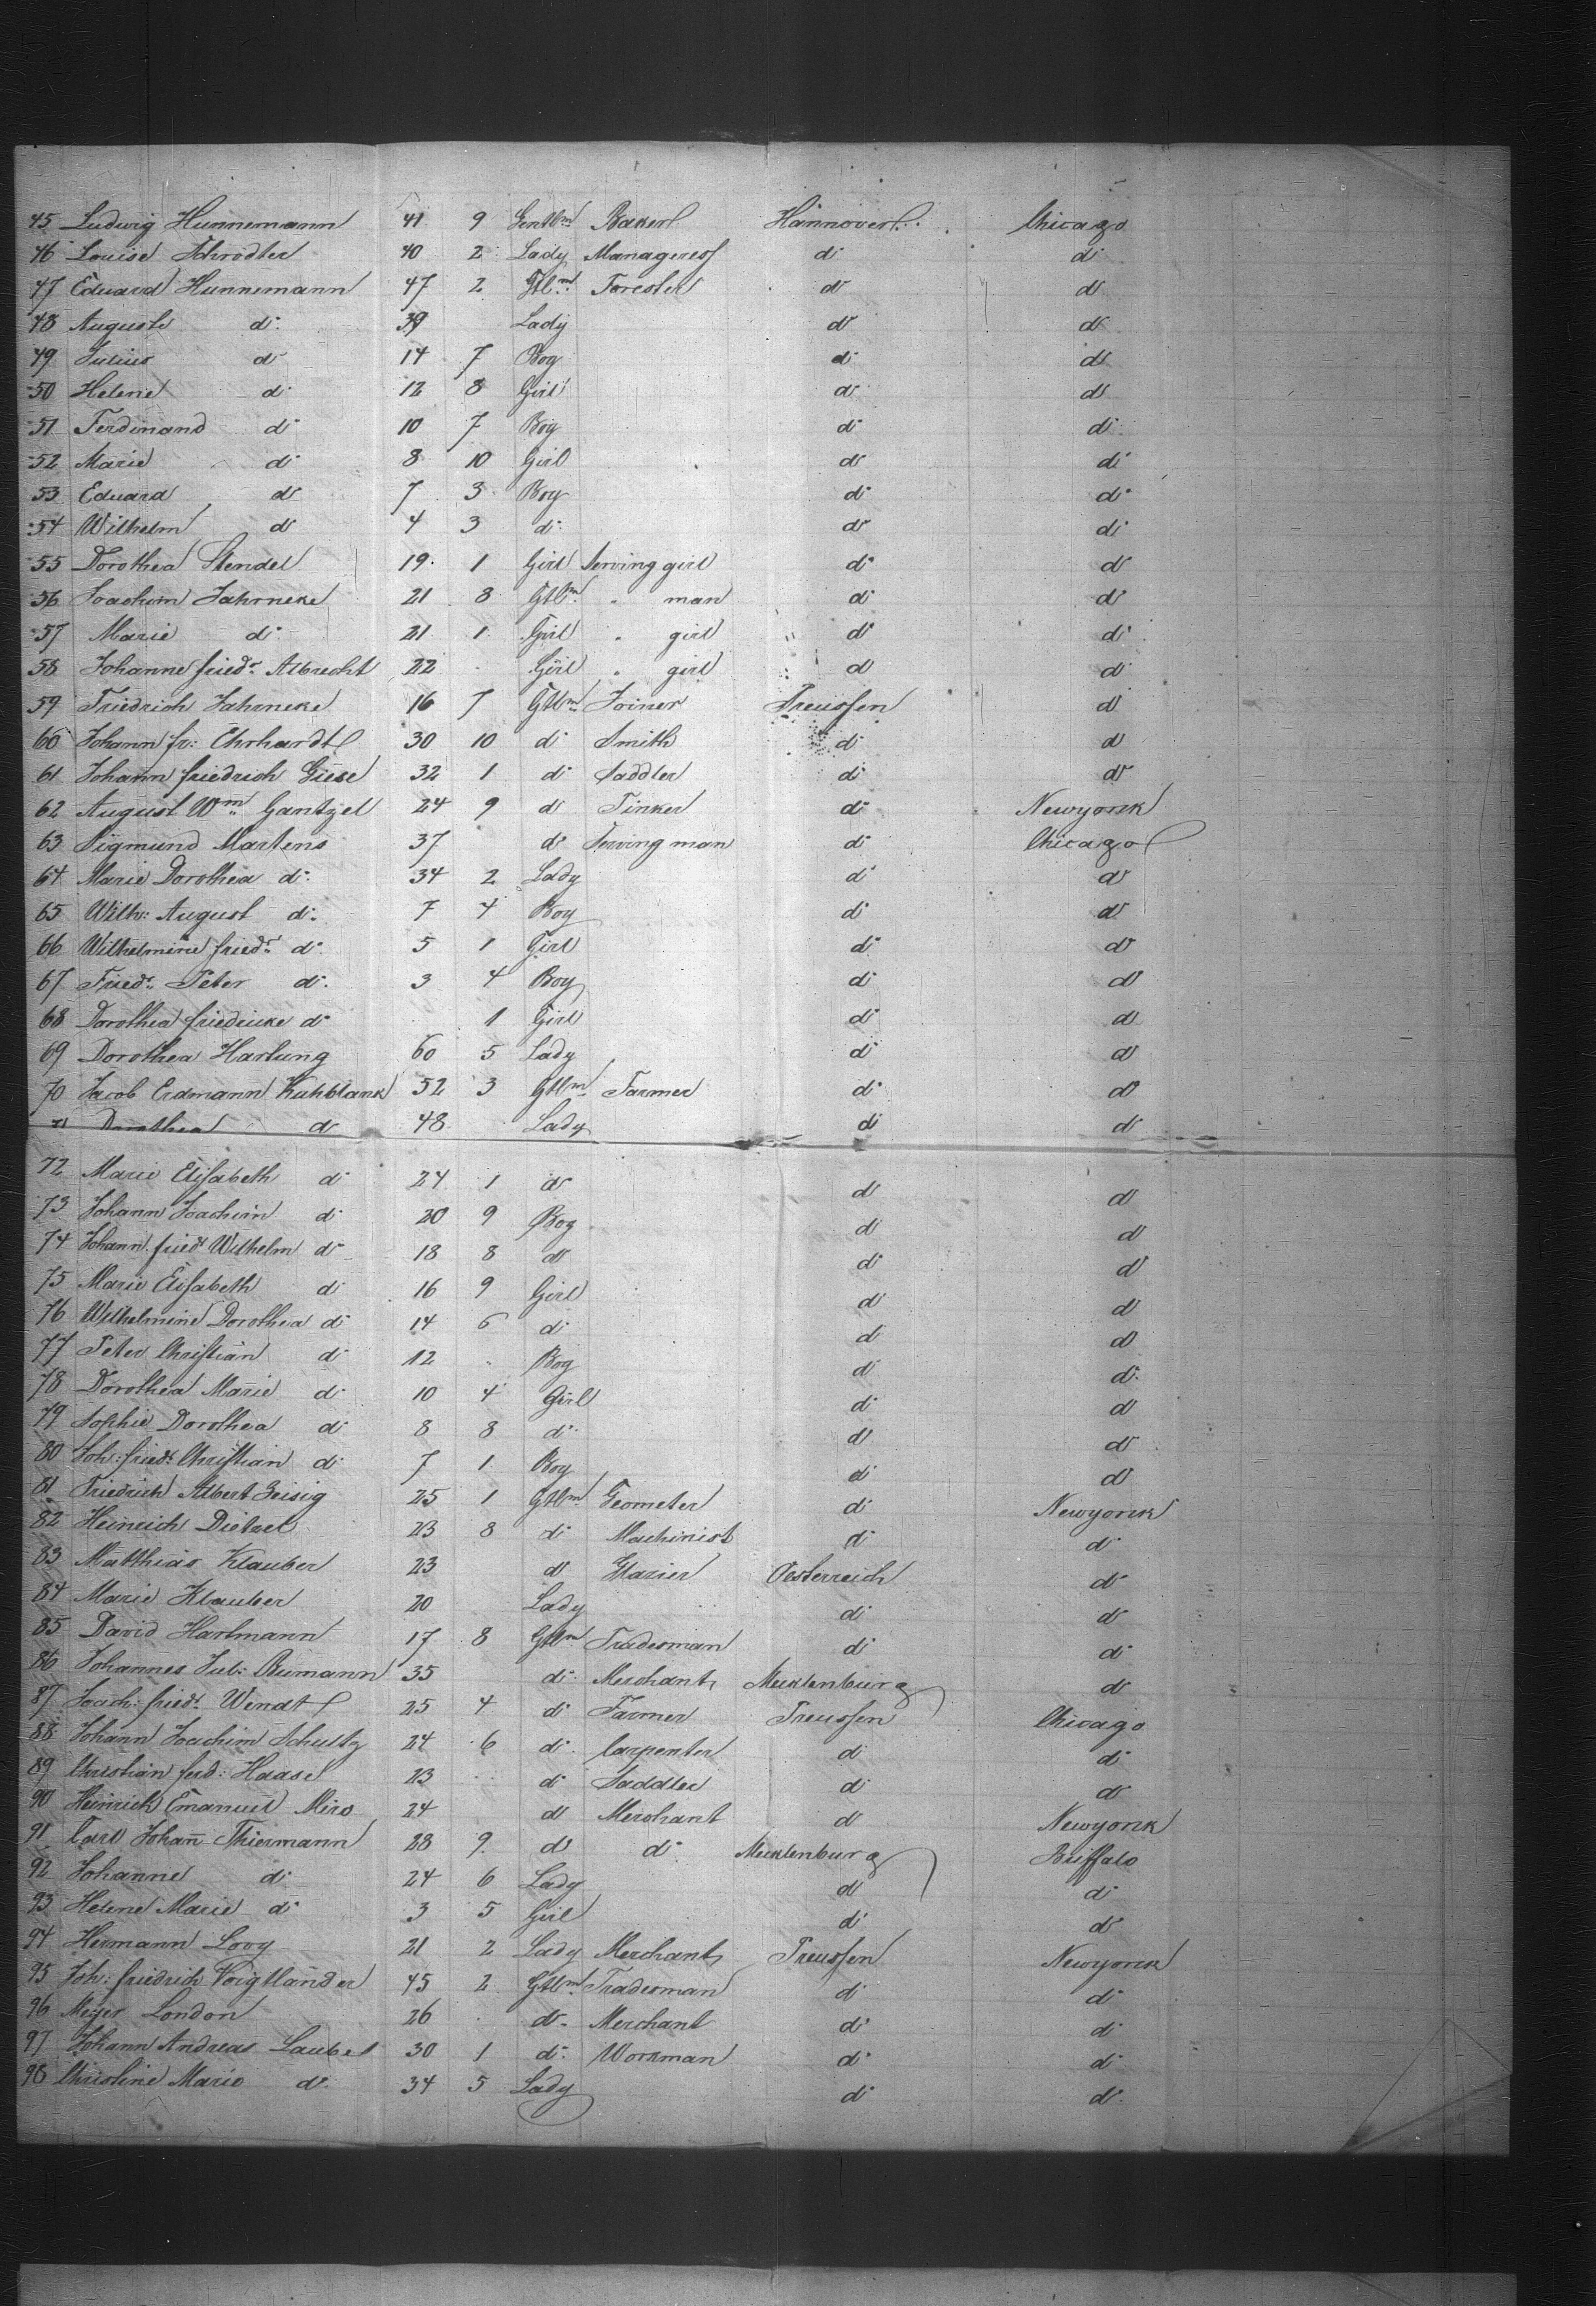 45 Ludwig Hunnemann 41 9 Gentlm Baker Hannover Chicago
46 Louise Schrödter 40 2 Lady Manageress do do
47 Eduard Hunnemann 47 2 Gtlm Forester do do
48 Auguste do 39 Lady do do
49 Julius do 14 7 Boy do do
50 Helene do 12 8 Girl do do
51 Ferdinand do 10 7 Boy do do
52 Marie do 8 10 Girl do do
53 Eduard do 7 3 Boy do do
54 Wilhelm do 4 3 do do do
55 Dorothea Stendel 19 1 Girl Serving girl do do
56 Joachim Jahrneke 21 8 Gtlm " man do do
57 Marie do 21 1 Girl " girl do do
58 Johanne friedr Albrecht 22 Girl " girl do do
59 Friedrich Jahrneke 16 7 Gtlm Joiner Preussen do
60 Johann fr: Ehrhardt 30 10 do Smith do do
61 Johann friedrich Giese 32 1 do Saddler do do
62 August Wm Gantzel 24 9 do Tinker do Newyork
63 Sigmund Martens 37 do Serving man do Chicago
64 Marie Dorothea do 34 2 Lady do do
65 Wilh: August do 7 4 Boy do do
66 Wilhelmine friedr do 5 1 Girl do do
67 Friedr Peter do 3 4 Boy do do
68 Dorothea friedricke do 1 Girl do do
69 Dorothea Hartung 60 5 Lady do do
70 Jacob Erdmann Kuhblank 52 3 Gtlm Farmer do do
71 Dorothea do 48 Lady do do
72 Marie Elisabeth do 24 1 do do do
73 Johann Joachim do 20 9 Boy do do
74 Johann friedr Wilhelm do 18 8 do do do
75 Marie Elisabeth do 16 9 Girl do do
76 Wilhelmine Dorothea do 14 6 do do do
77 Peter Christian do 12 Boy do do
78 Dorothea Marie do 10 4 Girl do do
79 Sophie Dorothea do 8 8 do do do
80 Joh: friedr Christian do 7 1 Boy do do
81 Friedrich Albert Zeisig 25 1 Gtlm Geometer do Newyork
82 Heinrich Dietzel 23 8 do Machinist do do
83 Matthias Klauber 23 do Glazier Oesterreich do
84 Marie Klauber 20 Lady do do
85 David Hartmann 17 8 Gtlm Tradesman do do
86 Johannes Jul: Reumann 35 do Merchant Mecklenburg do
87 Joach: friedr Wendt 25 4 do Farmer Preussen Chicago
88 Johann Joachim Schultz 24 6 do Carpenter do do
89 Christian ferd: Haase 23 do Saddler do do
90 Heinrich Emanuel Miro 24 do Merchant do Newyork
91 Carl Johann Thiermann 28 9 do do Mecklenburg Buffalo
92 Johanne do 24 6 Lady do do
93 Helene Marie do 3 5 Girl do do
94 Hermann Lovy 21 2 Lady Merchant Preussen Newyork
95 Joh: friedrich Voigtländer 45 2 Gtlm Tradesman do do
96 Meyer London 26 do Merchant do do
97 Johann Andreas Laubel 30 1 do Workman do do
98 Christine Marie do 34 5 Lady do do